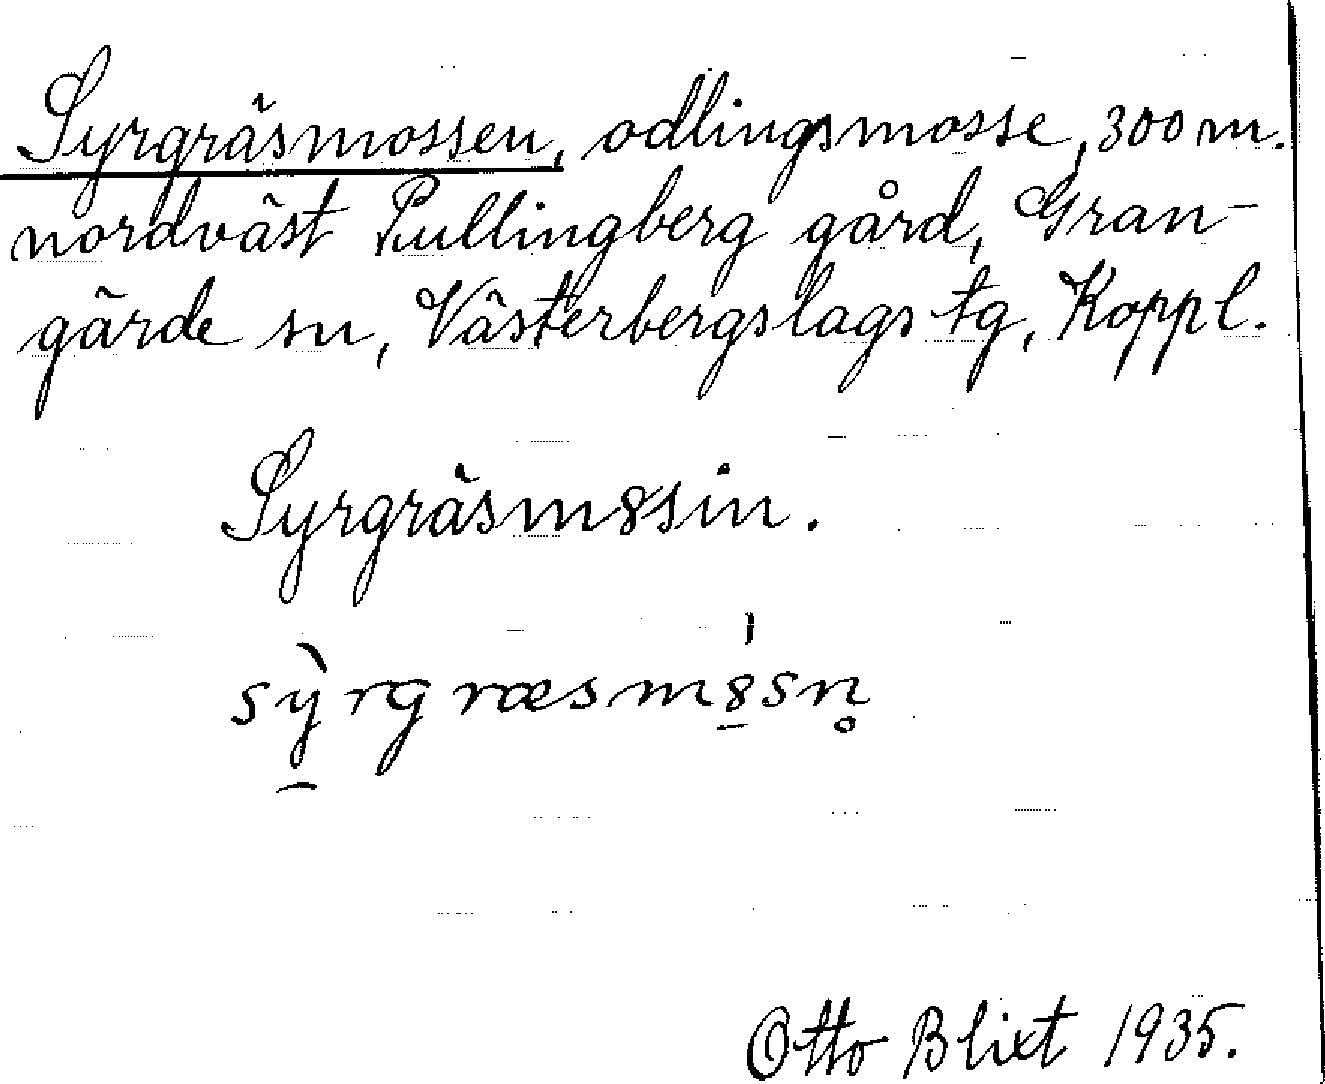 Syrgräsmossen, odlingsmosse, 300 m.
nordväst Pullingberg gård, Gran-
gärde sn, Västerbergslags tg, Koppl.
Syrgräsm8sin.
sỳrgræsm8̱sn̥
Otto Blixt 1935.